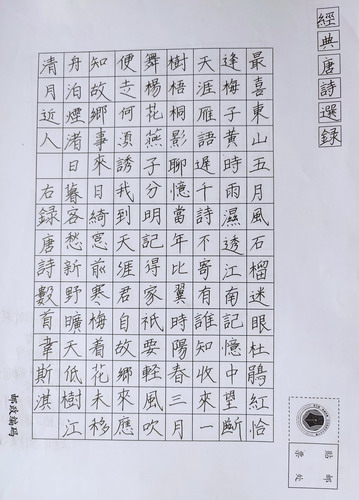 經典唐詩選錄
最喜東山五月風石榴迷眼杜鵑紅恰
逢梅子黃時雨濕透江南記憶中望斷
天涯雁語遲千詩不寄有誰知收來一
樹梧桐影聊憶當年比翼時陽春三月
舞楊花燕子分明記得家祇要輕風吹
便走何須誘我到天涯君自故鄉來應
知故鄉事來日綺窓前寒梅着花未移
舟泊煙渚日暮客愁新野曠天低樹江
清月近人 右錄唐詩數首韋斯淇
郵政編碼
貼郵
票處